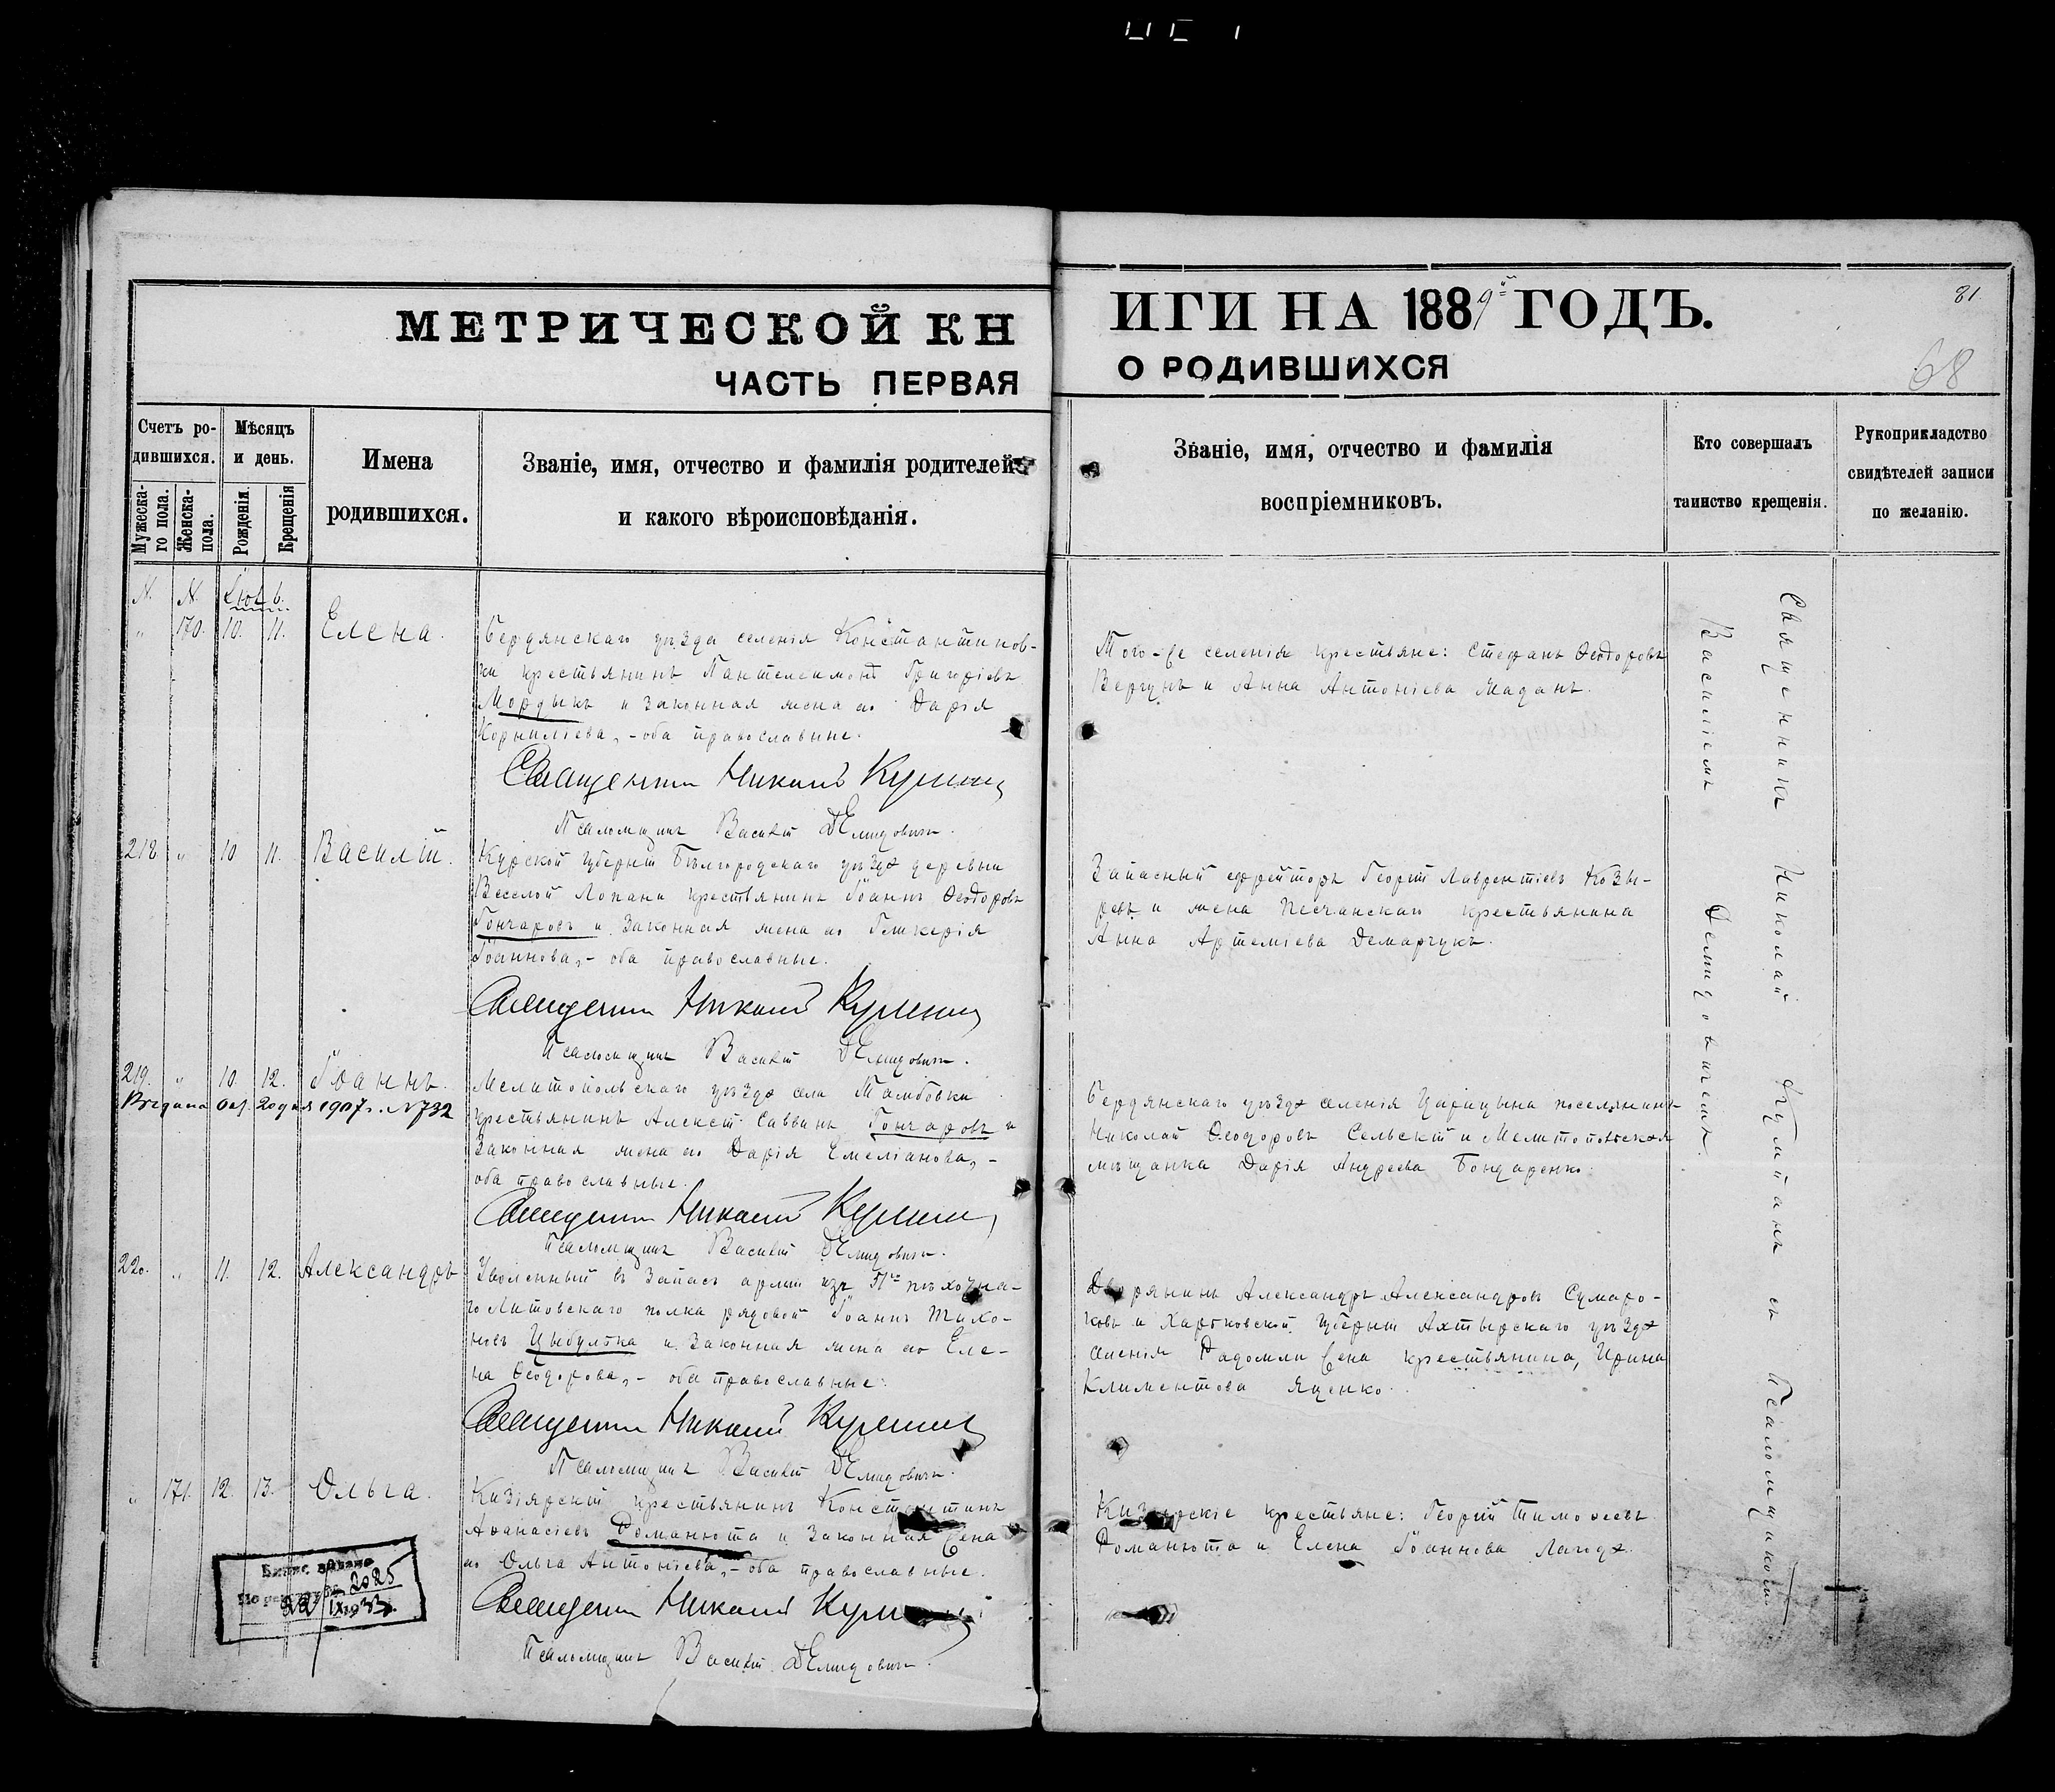 МЕТРИЧЕСКОЙ КНИГИ НА 1889й ГОДЪ.
81
68
ЧАСТЬ ПЕРВАЯ О РОДИВШИХСЯ
Счетъ ро-
дившихся.
Мужеска-
го пола.
Женска-
пола.
Мѣсяцъ
и день.
Рожденія.
Крещенія
Имена
родившихся.
Званіе, имя, отчество и фамилія родителей
и какого вѣроисповѣданія.
Званіе, имя, отчество и фамилія
воспріемниковъ.
Кто совершалъ
таинство крещенія.
Рукоприкладство
свидѣтелей записи
по желанію.
N. N.
" 170. 10. 11. Елена.
Бердянскаго уѣзда селенія Константинов-
ки крестьянинъ Пантелеимонъ Григоріевъ
Мордыкъ и законная жена его Дарія
Корниліева, - оба православные.
Священникъ Николай
Псаломщикъ Василій Демидовичъ.
Того-же селенія крестьяне: Стефанъ Ѳеодоровъ
Вергунъ и Анна Антоніева Маданъ.
218 " 10 11. Василій.
Курской губерніи Бѣлгородскаго уѣзда деревни
Веселой Лопани крестьянинъ Іоаннъ Ѳеодоровъ
Гончаровъ и законная жена его Гликерія
Іоаннова, - оба православные.
Священникъ Николай
Псаломщикъ Василій Демидовичъ.
Запасный ефрейторъ Георгій Лаврентіевъ Козы-
ревъ и жена Песчанскаго крестьянина
Анна Артеміева Демарчукъ.
219. " 10. 12. Іоаннъ.
1907г. N732
Мелитопольскаго уѣзда села Тамбовки
крестьянинъ Алексій Саввинъ Гончаровъ и
законная жена его Дарія Емеліанова, -
оба православные.
Священникъ Николай
Псаломщикъ Василій Демидовичъ.
Бердянскаго уѣзда селенія Царицына поселянинъ
Николай Ѳеодоровъ Сельскій и Мелитопольская
мѣщанка Дарія Андреева Бондаренко.
220. " 11. 12. Александръ
Уволенный въ запасъ арміи изъ пѣхотна-
го Литовскаго полка рядовой Іоаннъ Тихо-
новъ Цыбулька и законная жена его Еле-
на Ѳеодорова, - оба православные.
Священникъ Николай
Псаломщикъ Василій Демидовичъ.
Дворянинъ Александръ Александровъ Сумаро-
ковъ и Харьковской губерніи Ахтырскаго уѣзда
селенія жена крестьянина, Ирина
Климентова Яценко.
" 171. 12. 13. Ольга.
Кизіярскій крестьянинъ Константинъ
Аѳанасіевъ Романюта и законная жена
его Ольга Антоніева, - оба православные.
Священникъ Николай
Псаломщикъ Василій Демидовичъ.
Кизіярскіе крестьяне: Георгій Тимоѳеевъ
Романюта и Елена Іоаннова Лагода.
2025
Священникъ Николай съ Псаломщикомъ
Василіемъ Демидовичемъ.